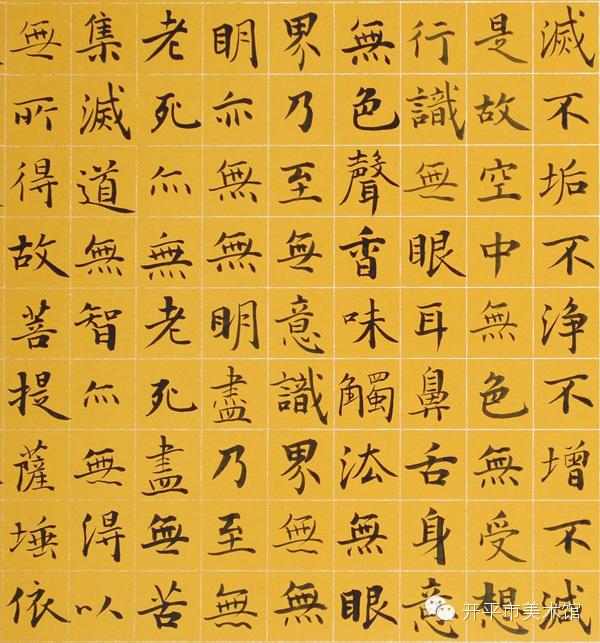 滅不垢不淨不增不減
是故空中無色無受想
行識無眼耳鼻舌身意
無色聲香味觸法無眼
界乃至無意識界無無
明亦無無明盡乃至無
老死亦無老死盡無苦
集滅道無智亦無得以
無所得故菩提薩埵依
开平市美术馆